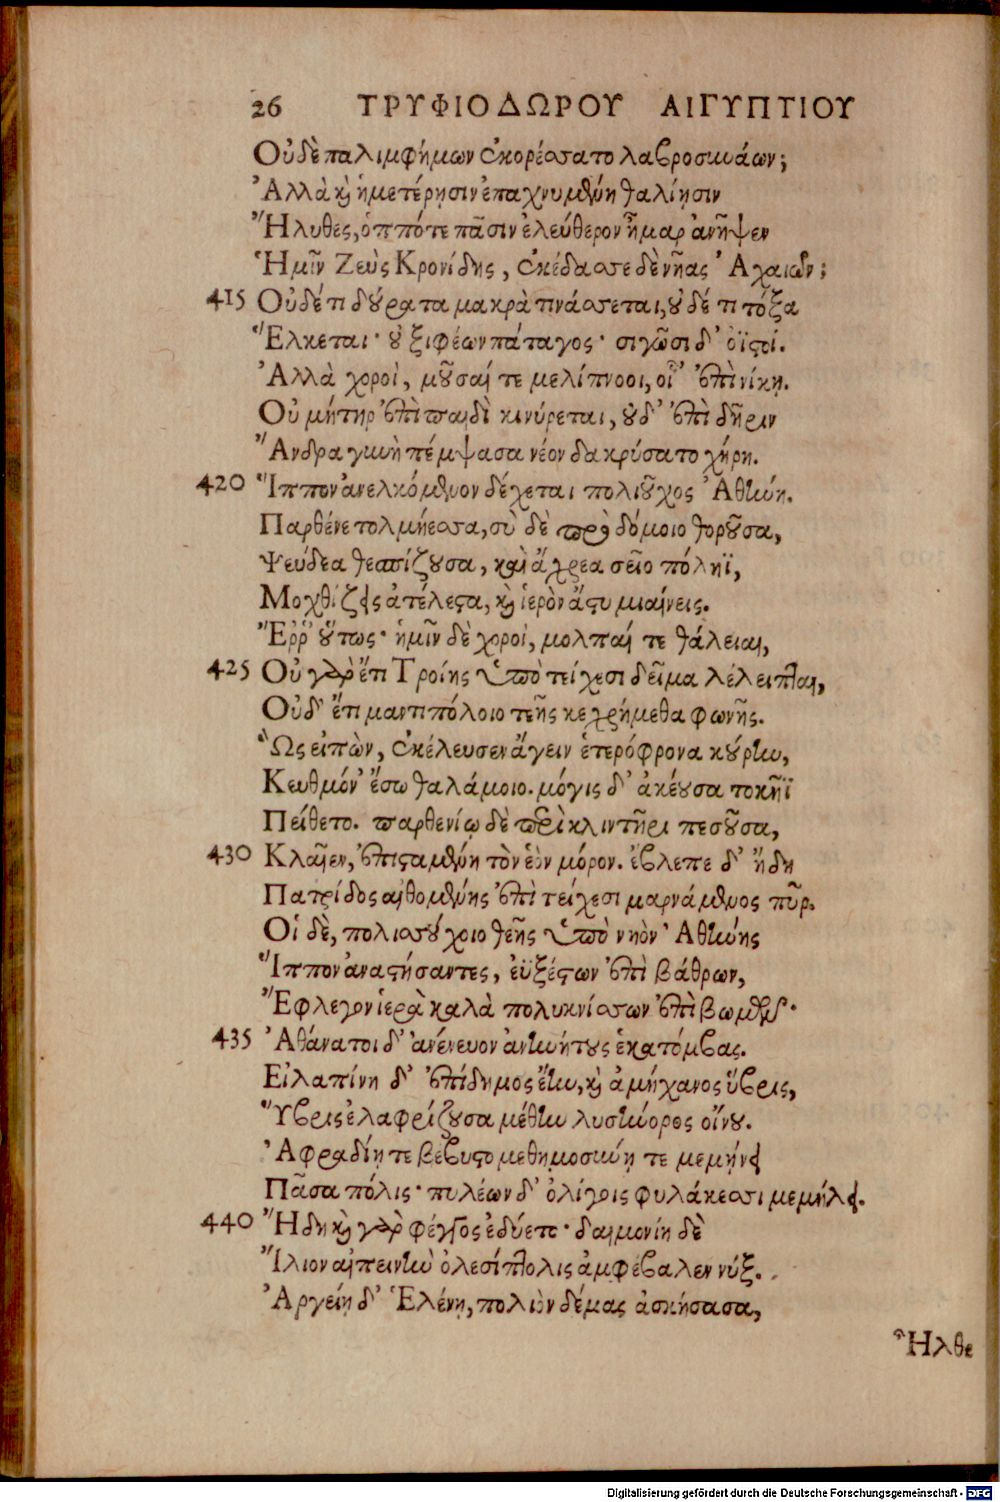 26 ΤΡΥΦΙΟΔΩΡΟΥ ΑΙΓΥΠΤΙΟΥ
Οὐδὲ παλιμφήμων ἐκορέσσατο λαβροσυνάων;
Ἀλλὰ καὶ ἡμετέρῃσιν ἐπαχνυμένη θαλίῃσιν
Ἤλυθες, ὁππότε πᾶσιν ἐλεύθερον ἦμαρ ἀνῆψεν
Ἡμῖν Ζεὺς Κρονίδης, ἐκέδασσε δὲ νῆας Ἀχαιῶν;
415 Οὐδέ τι δούρατα μακρὰ τινάσσεται, οὐδέ τι τόξα
Ἕλκεται· οὐ ξιφέων πάταγος· σιγῶσι δ' ὀϊστοί.
Ἀλλὰ χοροὶ, μοῦσαί τε μελίπνοοι, οἷ' ἐπὶ νίκῃ.
Οὐ μήτηρ ἐπὶ παιδὶ κινύρεται, οὐδ' ἐπὶ δῆριν
Ἄνδρα γυνὴ πέμψασα νέον δακρύσατο χήρη.
420 Ἵππον ἀνελκόμενον δέχεται πολιοῦχος Ἀθήνη.
Παρθένε τολμήεσσα, σὺ δὲ πρὸ δόμοιο θοροῦσα,
Ψεύδεα θεσπίζουσα, καὶ ἄγρεα σεῖο πόληϊ,
Μοχθίζεις ἀτέλεστα, καὶ ἱερὸν ἄστυ μιαίνεις.
Ἔῤῥ' οὕτως· ἡμῖν δὲ χοροὶ, μολπαί τε θάλειαι,
425 Οὐ γὰρ ἔτι Τροίης ὑπὸ τείχεσι δεῖμα λέλειπται,
Οὐδ' ἔτι μαντιπόλοιο τεῆς κεχρήμεθα φωνῆς.
Ὣς εἰπὼν, ἐκέλευσεν ἄγειν ἑτερόφρονα κούρην,
Κευθμόν' ἔσω θαλάμοιο. μόγις δ' ἀκέουσα τοκῆϊ
Πείθετο. παρθενίῳ δὲ περὶ κλιντῆρι πεσοῦσα,
430 Κλαῖεν, ἐπισταμένη τὸν ἑὸν μόρον. ἔβλεπε δ' ἤδη
Πατρίδος αἰθομένης ἐπὶ τείχεσι μαρνάμενος πῦρ.
Οἱ δὲ, πολισσούχοιο θεῆς ὑπὸ νηὸν Ἀθήνης
Ἵππον ἀναστήσαντες, ἐϋξέστων ἐπὶ βάθρων,
Ἔφλεγον ἱερὰ καλὰ πολυκνίσσων ἐπὶ βωμῶν·
435 Ἀθάνατοι δ' ἀνένευον ἀνηνύτους ἑκατόμβας.
Εἰλαπίνη δ' ἐπίδημος ἔην, καὶ ἀμήχανος ὕβρις,
Ὕβρις ἐλαφρίζουσα μέθην λυσήνορος οἴνου.
Ἀφραδίῃ τε βέβυστο μεθημοσύνῃ τε μεμήνει
Πᾶσα πόλις· πυλέων δ' ὀλίγοις φυλάκεσσι μεμήλει.
440 Ἤδη καὶ γὰρ φέγγος ἐδύετο· δαιμονίη δὲ
Ἴλιον αἰπεινὴν ὀλεσίπτολις ἀμφέβαλεν νύξ.
Ἀργείη δ' Ἑλένη, πολιὸν δέμας ἀσκήσασα,
Ἦλθε
Digitalisierung gefördert durch die Deutsche Forschungsgemeinschaft - DFG